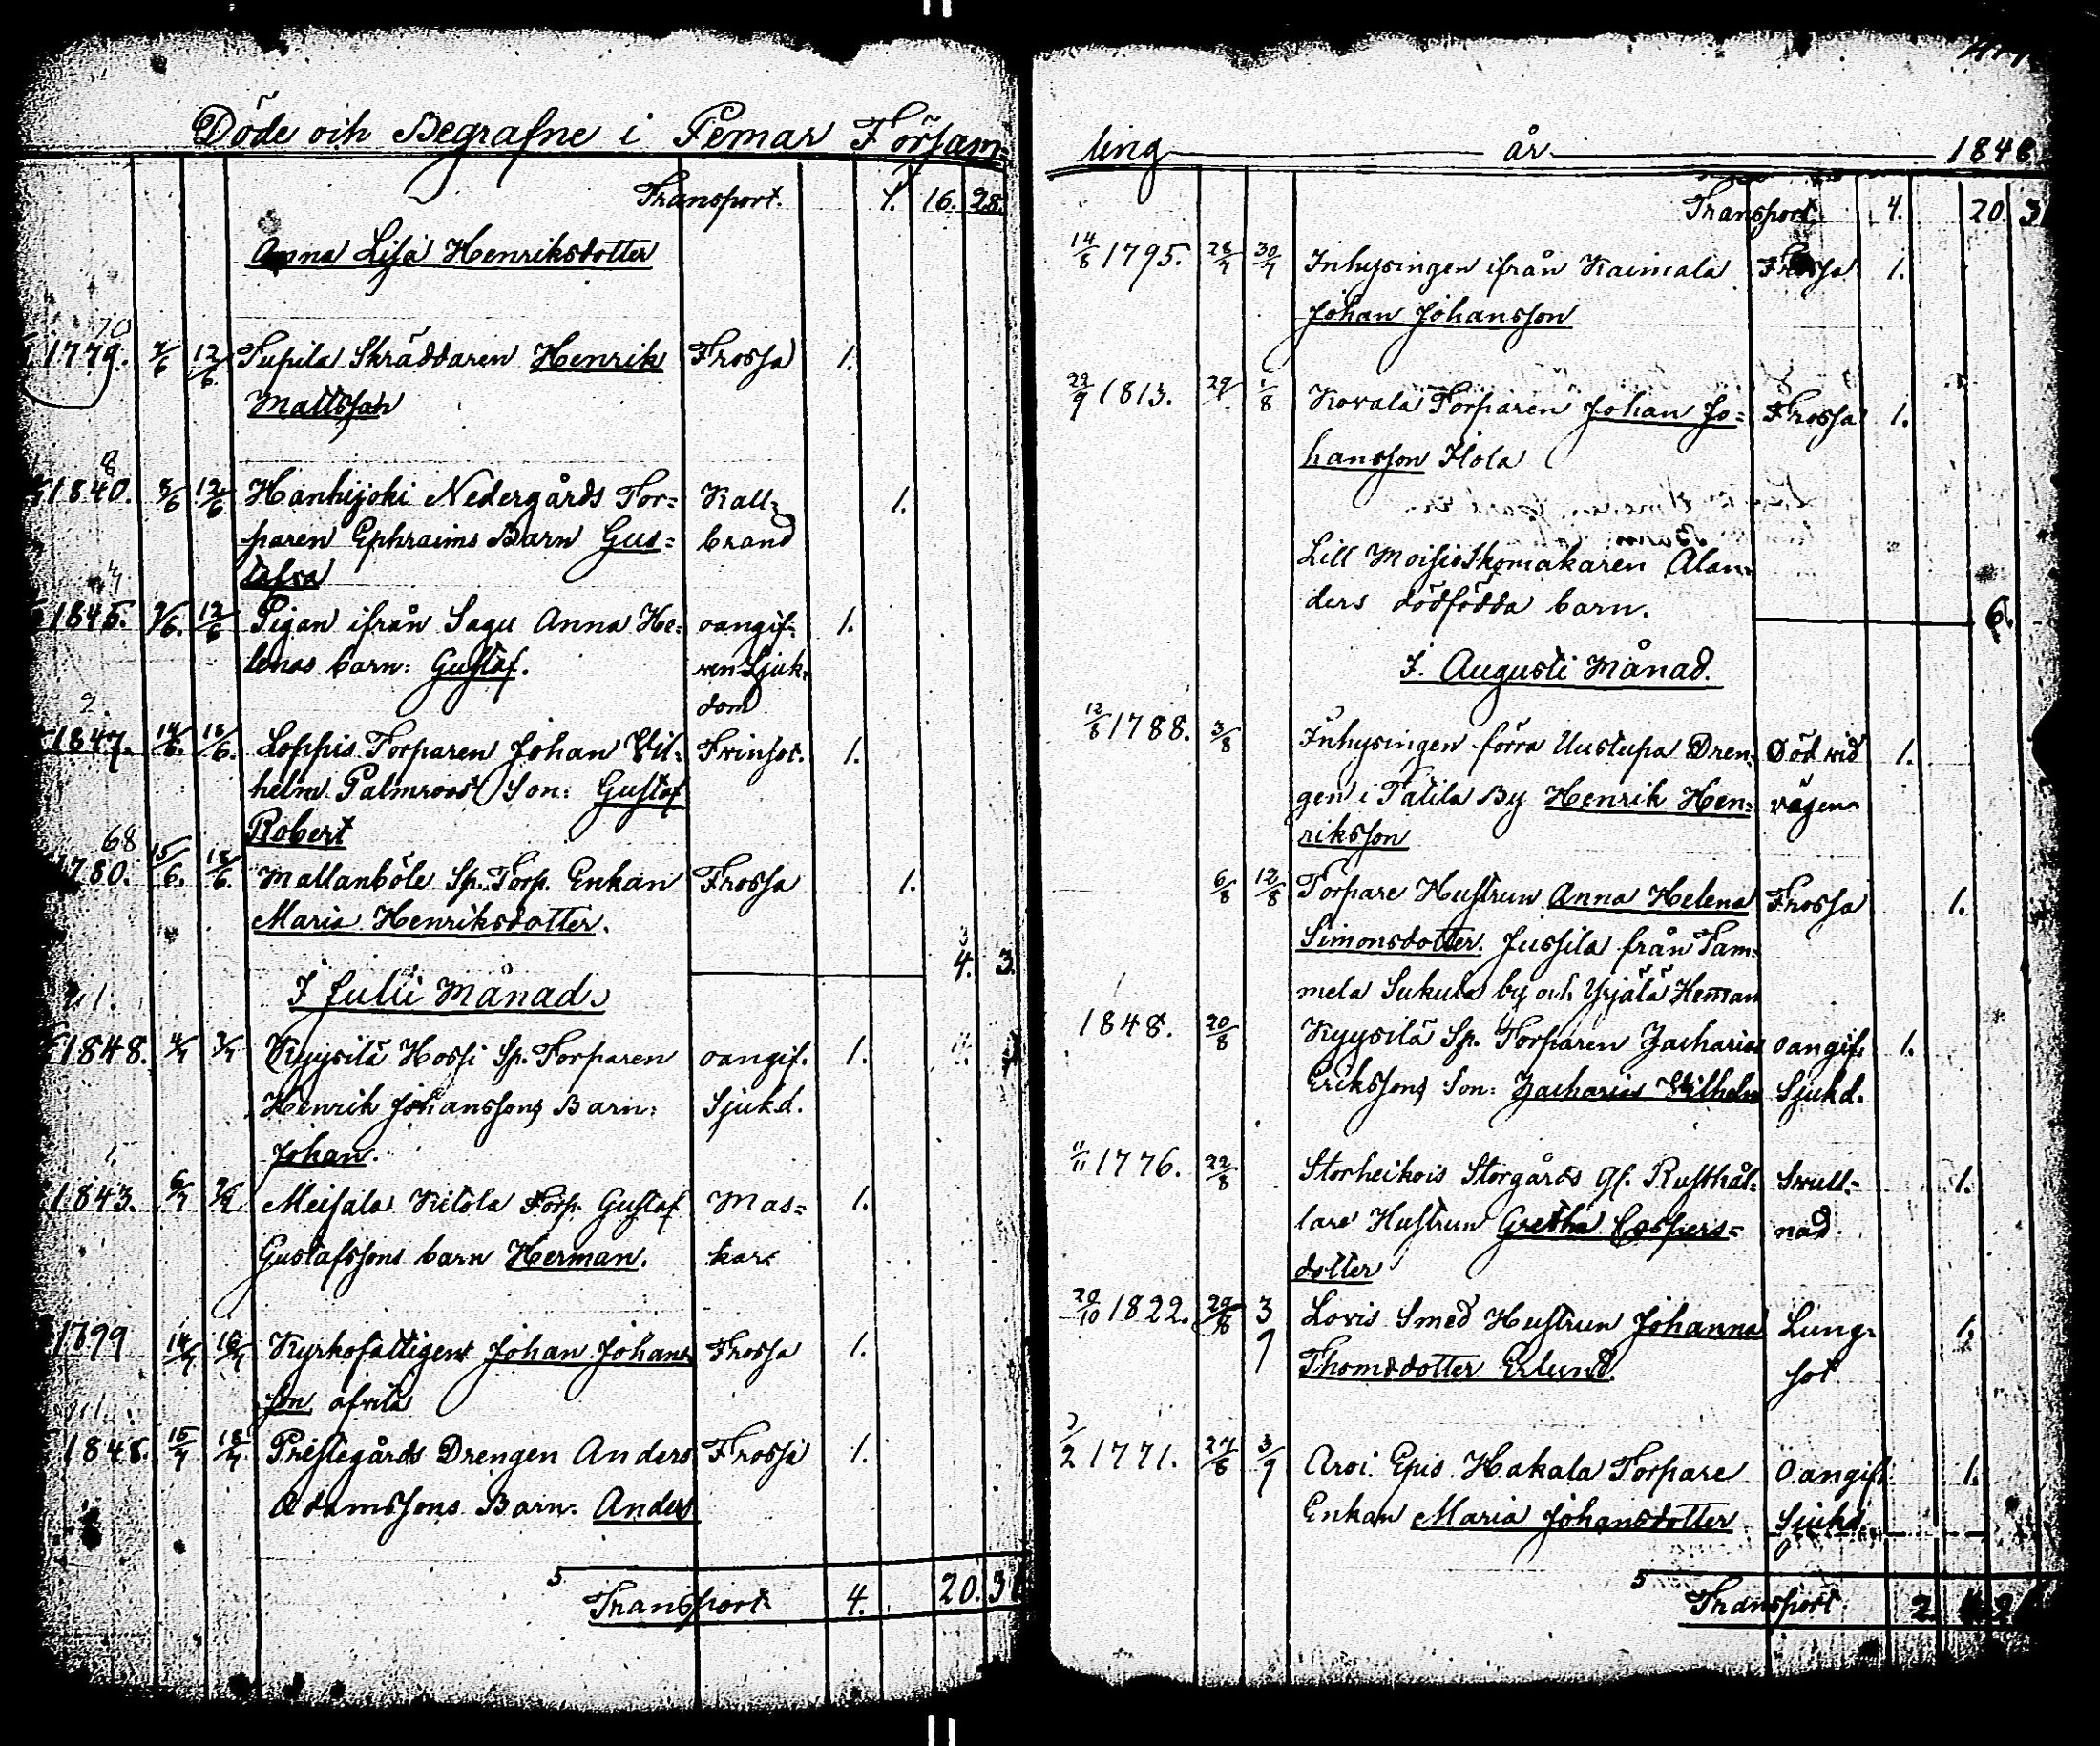 Döde och Begrafne i Pemar Församling år 1848
Transport. 1. 16. 28.
Anna Lisa Henriksdotter
1779. 7/6 12/6 Tupila Skräddaren Henrik Frossa 1.
Mattsson
8
1840. 8/6 12/6 Hanhijoki Nedergårds Tor= Kall= 1.
paren Ephraims Barn Gus= brand
tafva
1845. 7/6. 12/6 Pigan ifrån Sagu Anna He= oangif= 1.
lenas barn: Gustaf. ven Sjuk=
dom
2.
1847. 14/6. 18/6. Loppis Torparen Johan Wil= Trinsot. 1.
helm Palmroos Son: Gustaf
Robert
68
1780. 15/6. 18/6. Mallanböle Sp. Torp. Enkan Frossa 1.
Maria Henriksdotter.
4. 3.
I Julii Månad.
1848. 4/7 7/7 Kyysilä Hossi Sp. Torparen oangif. 1.
Henrik Johanssons Barn: Sjukd.
Johan.
1843. 6/7 9/7 Meisala Kitola Torp. Gustaf Mas= 1.
Gustafssons barn Herman. kar.
1799 14/7 16/7 Kyrkofattigen Johan Johans Frossa 1.
son afvita
1848. 15/7 18/7 Prestegårds Drengen Anders Frossa 1.
Adamssons Barn: Anders
5
Transport 4. 20. 31
Transport. 4. 20. 31
14/8 1795. 28/7 30/7 Inhysingen ifrån Kaimala Frossa 1.
Johan Johansson
29/9 1813. 29/ 1/8 Kovala Torparen Johan Jo= Frossa 1.
hansson Ilola
Lill Moisio Skomakaren Alan=
ders dödfödda barn.
6.
I. Augusti Månad.
12/8 1788. 3/8 Inhysingen förra Uustupa Dren= Död vid 1.
gen i Tatila By Henrik Hen= vägen
riksson
6/8 12/8 Torpare Hustrun Anna Helena Frossa 1.
Simonsdotter. Jussila från Tam=
mela Sukula by och Yrjälä Heman
1848. 20/8 Kyysilä Sp. Torparen Zacharias oangif. 1.
Erikssons Son: Zacharias Wilhelm Sjukd.
11/11 1776. 22/8 Storheikois Storgårds Gf. Rusthål= Svull= 1.
lare Hustrun Gretha Caspers= nad
dotter
20/10 1822. 29/8 3/9 Lovis Smed Hustrun Johanna Lung= 1.
Thomsdotter Erlund. sot
7/2 1771. 27/8 3/9 Arvi Epis Hakala Torpare Oangif. 1.
Enkan Maria Johansdotter Sjukd.
5
Transport. 2